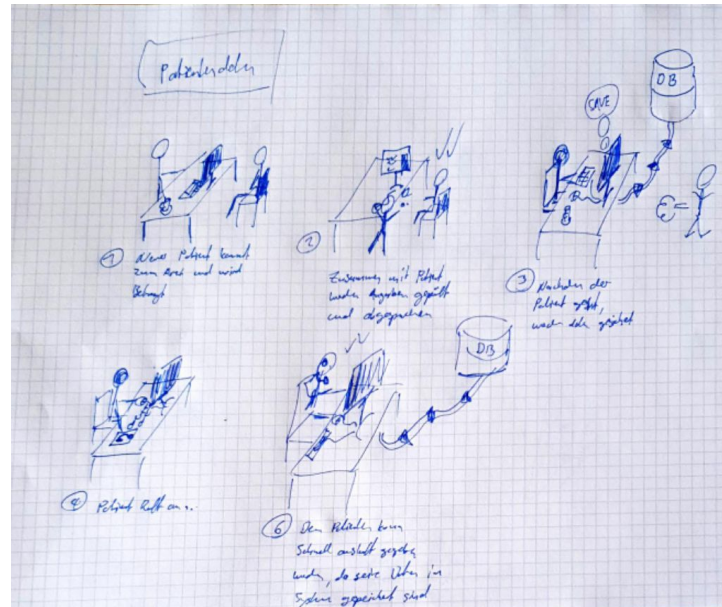 Patientendaten
SAVE
DB
① Neues Patient kommt
zum Arzt und wird
Befragt
② Zusammen mit Patient
werden Angaben geprüft
und abgesprochen
③ Nachdem der
Patient geht,
werden daten gespeichert
④ Patient Ruft an..
DB
⑥ Dem Patienten kann
Schnell auskuft gegeben
werden, da seine Daten im
System gespeichert sind